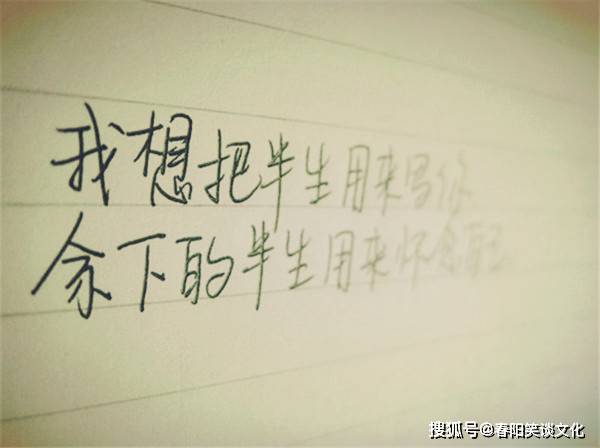 我想把半生用来写你
余下的半生用来怀念自己
搜狐号@春阳笑谈文化